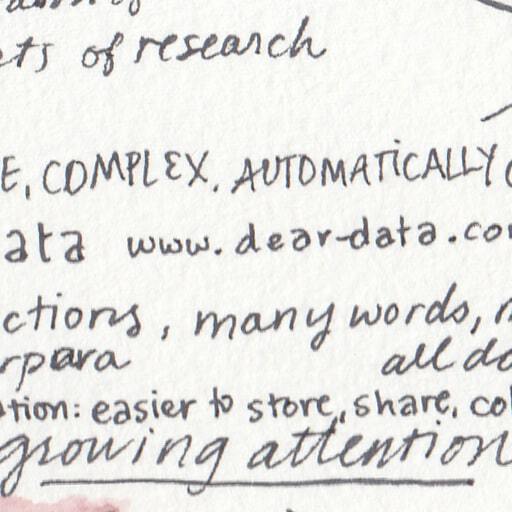 ets of research
E, COMPLEX, AUTOMATICALLY
ata www.dear-data.co
ctions, many words,
rpara all do
tion: easier to store, share, co
growing attention